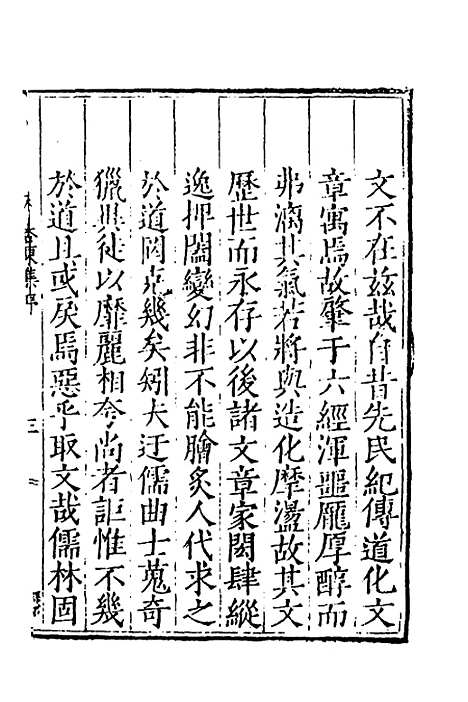 文不在茲哉自昔先民紀傳道化文
章寓焉故肇于六經渾噩龎厚醇而
弗漓其氣若將與造化摩盪故其文
歷世而永存以後諸文章家閎肆縱
逸押闔變幻非不能膾炙人代求之
於道罔克幾矣矧夫迂儒曲士蒐奇
獵異徒以靡麗相夸尚者詎惟不幾
於道且或戾焉惡乎取文哉儒林固
東集序
三